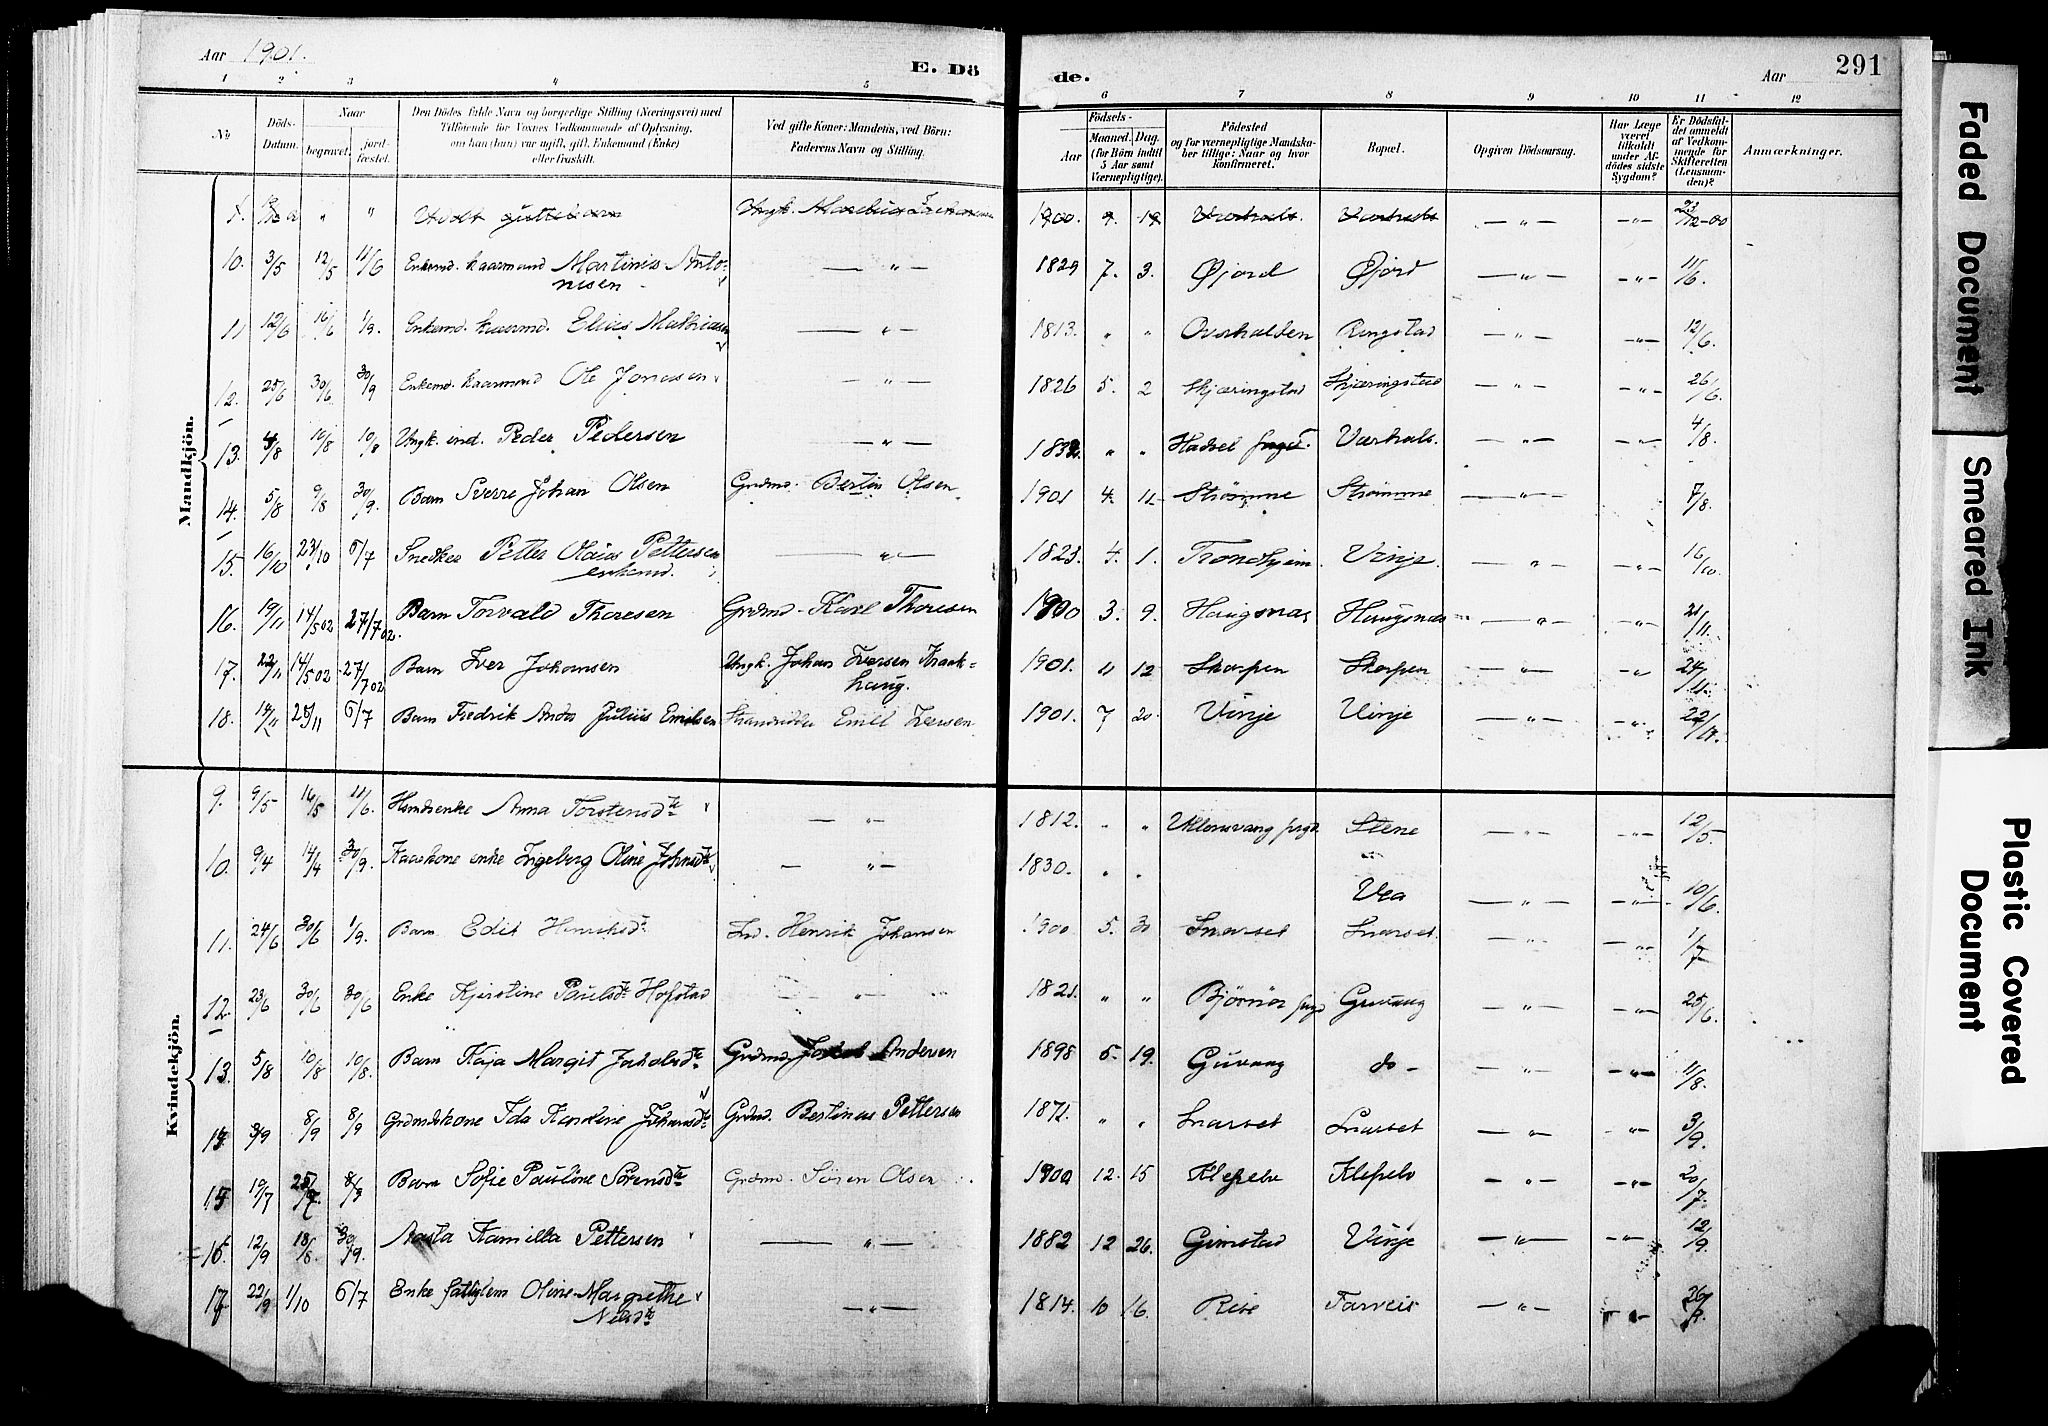 Aar 1901.
E. Dö
de.
Aar
291
1 2 3 4 5 6 7 8 9 10 11 12
No
Döds-Datum.
Naar
begravet.
jord-fæstet.
Den Dödes fulde Navn og borgerlige Stilling (Næringsvei) med
Tilføiende for Voxnes Vedkommende af Oplysning.
om han (hun) var ugift, gift, Enkemand (Enke)
eller fraskilt.
Ved gifte Koner: Mandens, ved Börn:
Faderens Navn og Stilling.
Födsels-
Aar
Maaned. Dag.
(for Börn indtil
5 Aar samt
Værnepligtige).
Födested
og for værnepligtige Mandska-
ber tillige: Naar og hvor
konfirmeret.
Bopæl.
Opgiven Dödsaarsag.
Har Læge
været
tilkaldt
under Af-
dödes sidste
Sygdom?
Er Dödsfal-
det anmeldt
af Vedkom-
mende for
Skifteretten
(Lensman-
den)?
Anmærkninger.
Mandkjön.
1900. 9. 19 — " — — " — 23/12-00
10. 3/5 12/5 11/6 Enkemd. kaarmand Martinus Anto-
nisen — " — 1829 7. 3. Øjord Øjord — " — — " — 11/6.
11 12/6 16/6 1/9. Enkemd. kaarmd. Elias Mathiasen — " — 1813. " " Overhalden Ringstad — " — — " — 12/6.
12. 25/6 30/6 30/9 Enkemd. kaarmand Ole Jonassen — " — 1826 5. 2 Skjæringstad Skjæringstad — " — — " — 26/6.
13. 4/8 10/8 10/8 Ungk. ind. Peder Pedersen — " — 1832 " " Hadsel prgd. Værhals. — " — — " — 4/8.
14. 5/8 9/8 30/9. Barn Sverre Johan Olsen Grdmd. Bertin Olsen 1901 4. 11 Strømme Strømme — " — — " — 7/8.
15. 16/10 23/10 6/7 Snedker Petter Olaus Pettersen
enkemd. — " — 1823. 4. 1. Trondhjem. Vinje. — " — — " — 16/10.
16. 19/11 14/5 02 27/7 02. Barn Torvald Thoresen Grdmd. Karl Thoresen 1900 3. 9. Haugsnæs Haugsnæs — " — — " — 21/11.
17. 22/11 14/5 02 27/7 02 Barn Iver Johansen Ungk. Johan Iversen Kraak-
haug. 1901. 11 12 Skarpen Skarpen — " — — " — 24/11.
18. 25/11 6/7 Barn Fredrik Andor Julius Emilsen Strandsidder Emil Iversen. 1901. 7 20. Vinje Vinje — " — — " — 22/11.
Kvindekjön.
9. 9/5 16/5 11/6. Anna Torstensdtr — " — 1812. " " Ullensvang prgd. Stene — " — — " — 12/5.
10. 9/4 14/4 30/9. Kaarkone enke Ingeborg Oline Johnsdtr — " — 1830. " " Vea — " — — " — 10/6.
11. 24/6 30/6 1/9. Barn Edit Henriksdtr Ind. Henrik Johansen 1900 5. 30 Snarset Snarset. — " — — " — 1/7
12. 23/6 30/6 30/6 Enke Kjerstine Paulsdtr Hofstad " 1821. " " Bjørnör prgd Gruvang — " — — " — 25/6.
13. 5/8 10/8 10/8. Barn Kaja Margit Jakobsdtr Grdmd. Jakob Andersen 1898 5. 19. Guvang do — — " — — " — 11/8.
3/9 8/9 8/9 Grdmdskone Ida Karoline Johansdtr Grdmd. Bertinus Pettersen 1871. " " Snarset Snarset — " — — " — 3/9.
15 19/7 25/7. 8/9 Barn Sofie Pauline Sørensdtr Grdmd. Søren Olsen 1900 12. 15 Klepelv Klepelv — " — — " — 20/7.
16. 12/9 18/8. 30/9. Aasta Kamilla Pettersen — " — 1882 12 26. Grimstad Vinje — " — — " — 12/9.
17 22/9 1/10 6/7 Enke fattiglem Oline Margrethe
Nilsdtr — " — 1814. 10 16. Rise Farveis — " — — " — 26/9.
Faded Document
Smeared Ink
Plastic Covered
Document